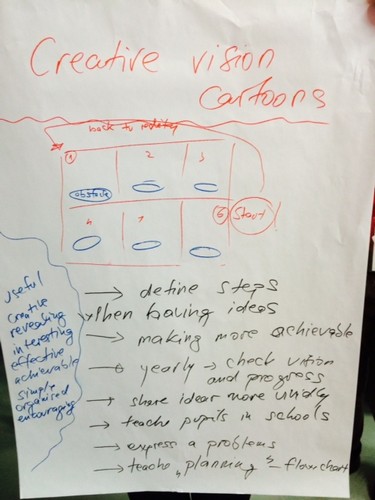 Creative vision
cartoons
back to reality
1 2 3
obstacle
4 7 6 Start
useful
creative
revealing
interesting
effective
achievable
simple
organised
encouraging
→ define steps
when having ideas
→ making more achievable
→ yearly → check vision
and progress
→ share ideas more vividly
→ teache pupils in schools
→ express a problems
→ teache "planning" - flowchart